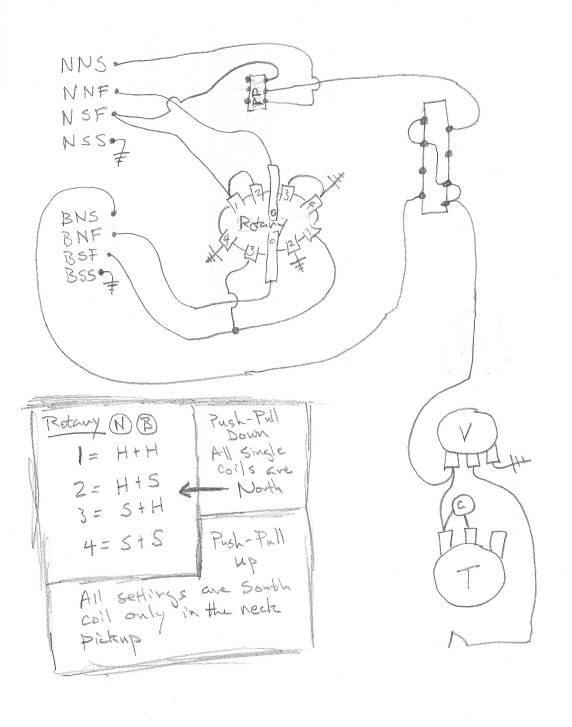 NNS
NNF
NSF
NSS
PP
1
2
3
4
0
Rotary
0
4
3
2
1
BNS
BNF
BSF
BSS
V
C
T
Rotary N B
1 = H + H
2 = H + S
3 = S + H
4 = S + S
Push-Pull
Down
All Single
coils are
North
Push-Pull
up
All settings are South
coil only in the neck
pickup